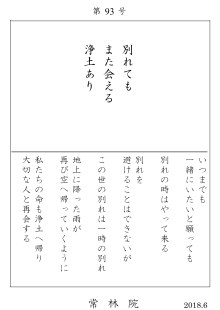 第 93 号
別れても
また会える
浄土あり
いつまでも
一緒にいたいと願っても
別れの時はやって来る
別れを
避けることはできないが
この世の別れは一時の別れ
地上に降った雨が
再び空へ帰っていくように
私たちの命も浄土へ帰り
大切な人と再会する
常林院
2018.6